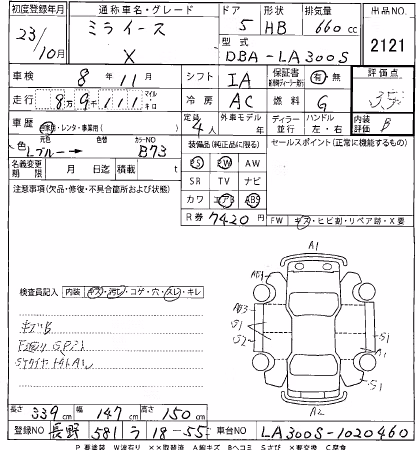 初度登録年月 通称車名・グレード ドア 形状 排気量 出品NO.
23年 10月 ミライース X 5 HB 660cc
型式 DBA-LA300S 2121
車検 8年 11月 シフト IA 保証書 有 無 評価点
走行 8万9千111 マイル キロ 冷房 AC 燃料 G 3.5
車歴 自家用・レンタ・事業用( ) 定員 4人 外車モデル 年 ディーラー 並行 ハンドル 左・右 内装評価 B
色 元色 Lブルー→ 色替 カラーNO B73 装備品(純正品に限る) セールスポイント(正常に機能するもの)
名義変更期限 月 日迄 積載 t PS PW AW
注意事項(欠品・修復・不具合箇所および状態) SR TV ナビ
カワ エアB ABS
R券 7420円 FW キズ・ヒビ割・リペア跡・X要
A1
検査員記入 内装 キズ・汚レ・コゲ・穴・スレ・キレ
キズB
A3
S1
S2
A1
S1
A2
長さ 339cm 幅 147cm 高さ 150cm
登録NO 長野 581 ラ 18-55 車台NO LA300S-1020460
P 要塗装 W波有り XX取替済 A線キズ Bヘコミ Sさび X要交換 C腐食